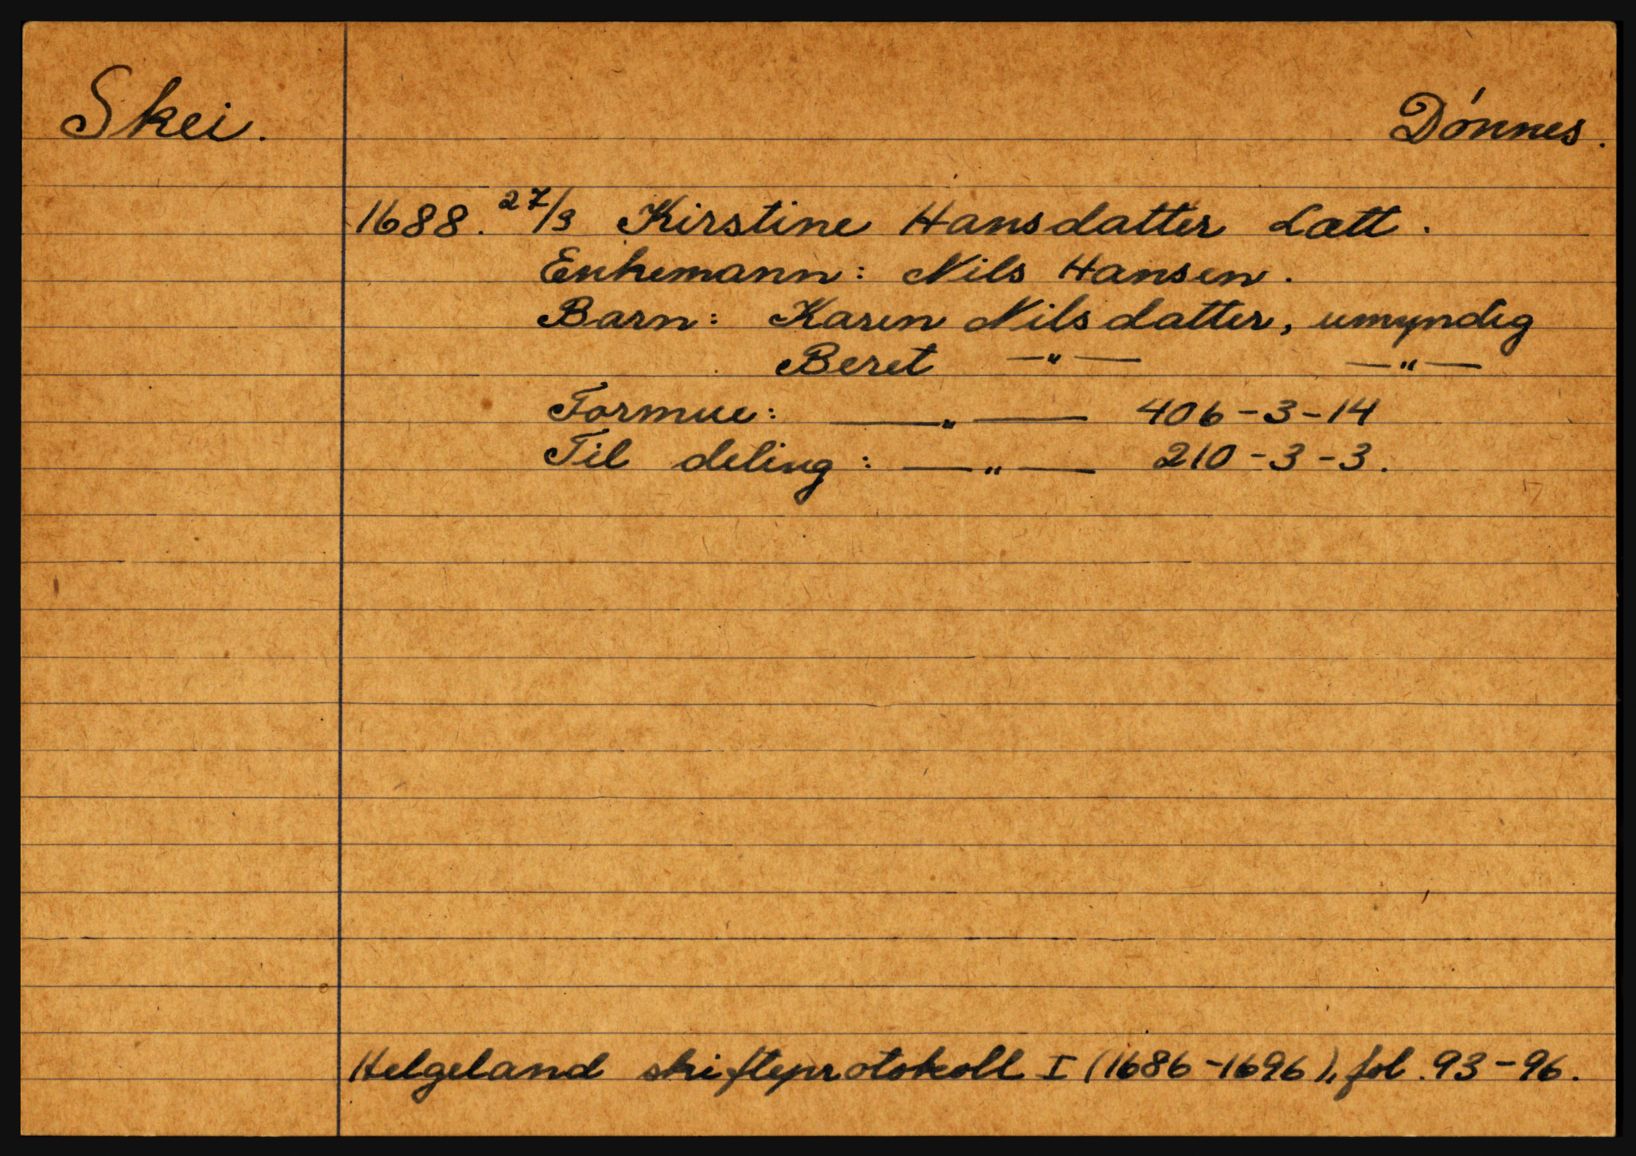 Skei.
Dønnes.
1688. 27/9 Kirstine Hansdatter Lætt.
Enkemann: Nils Hansen.
Barn: Karen Nilsdatter, umyndig
Beret —"— —"—
Formue: —"— 406-3-14
Til deling: —"— 210-3-3.
Helgeland skifteprotokoll I (1686-1696), fol. 93-96.